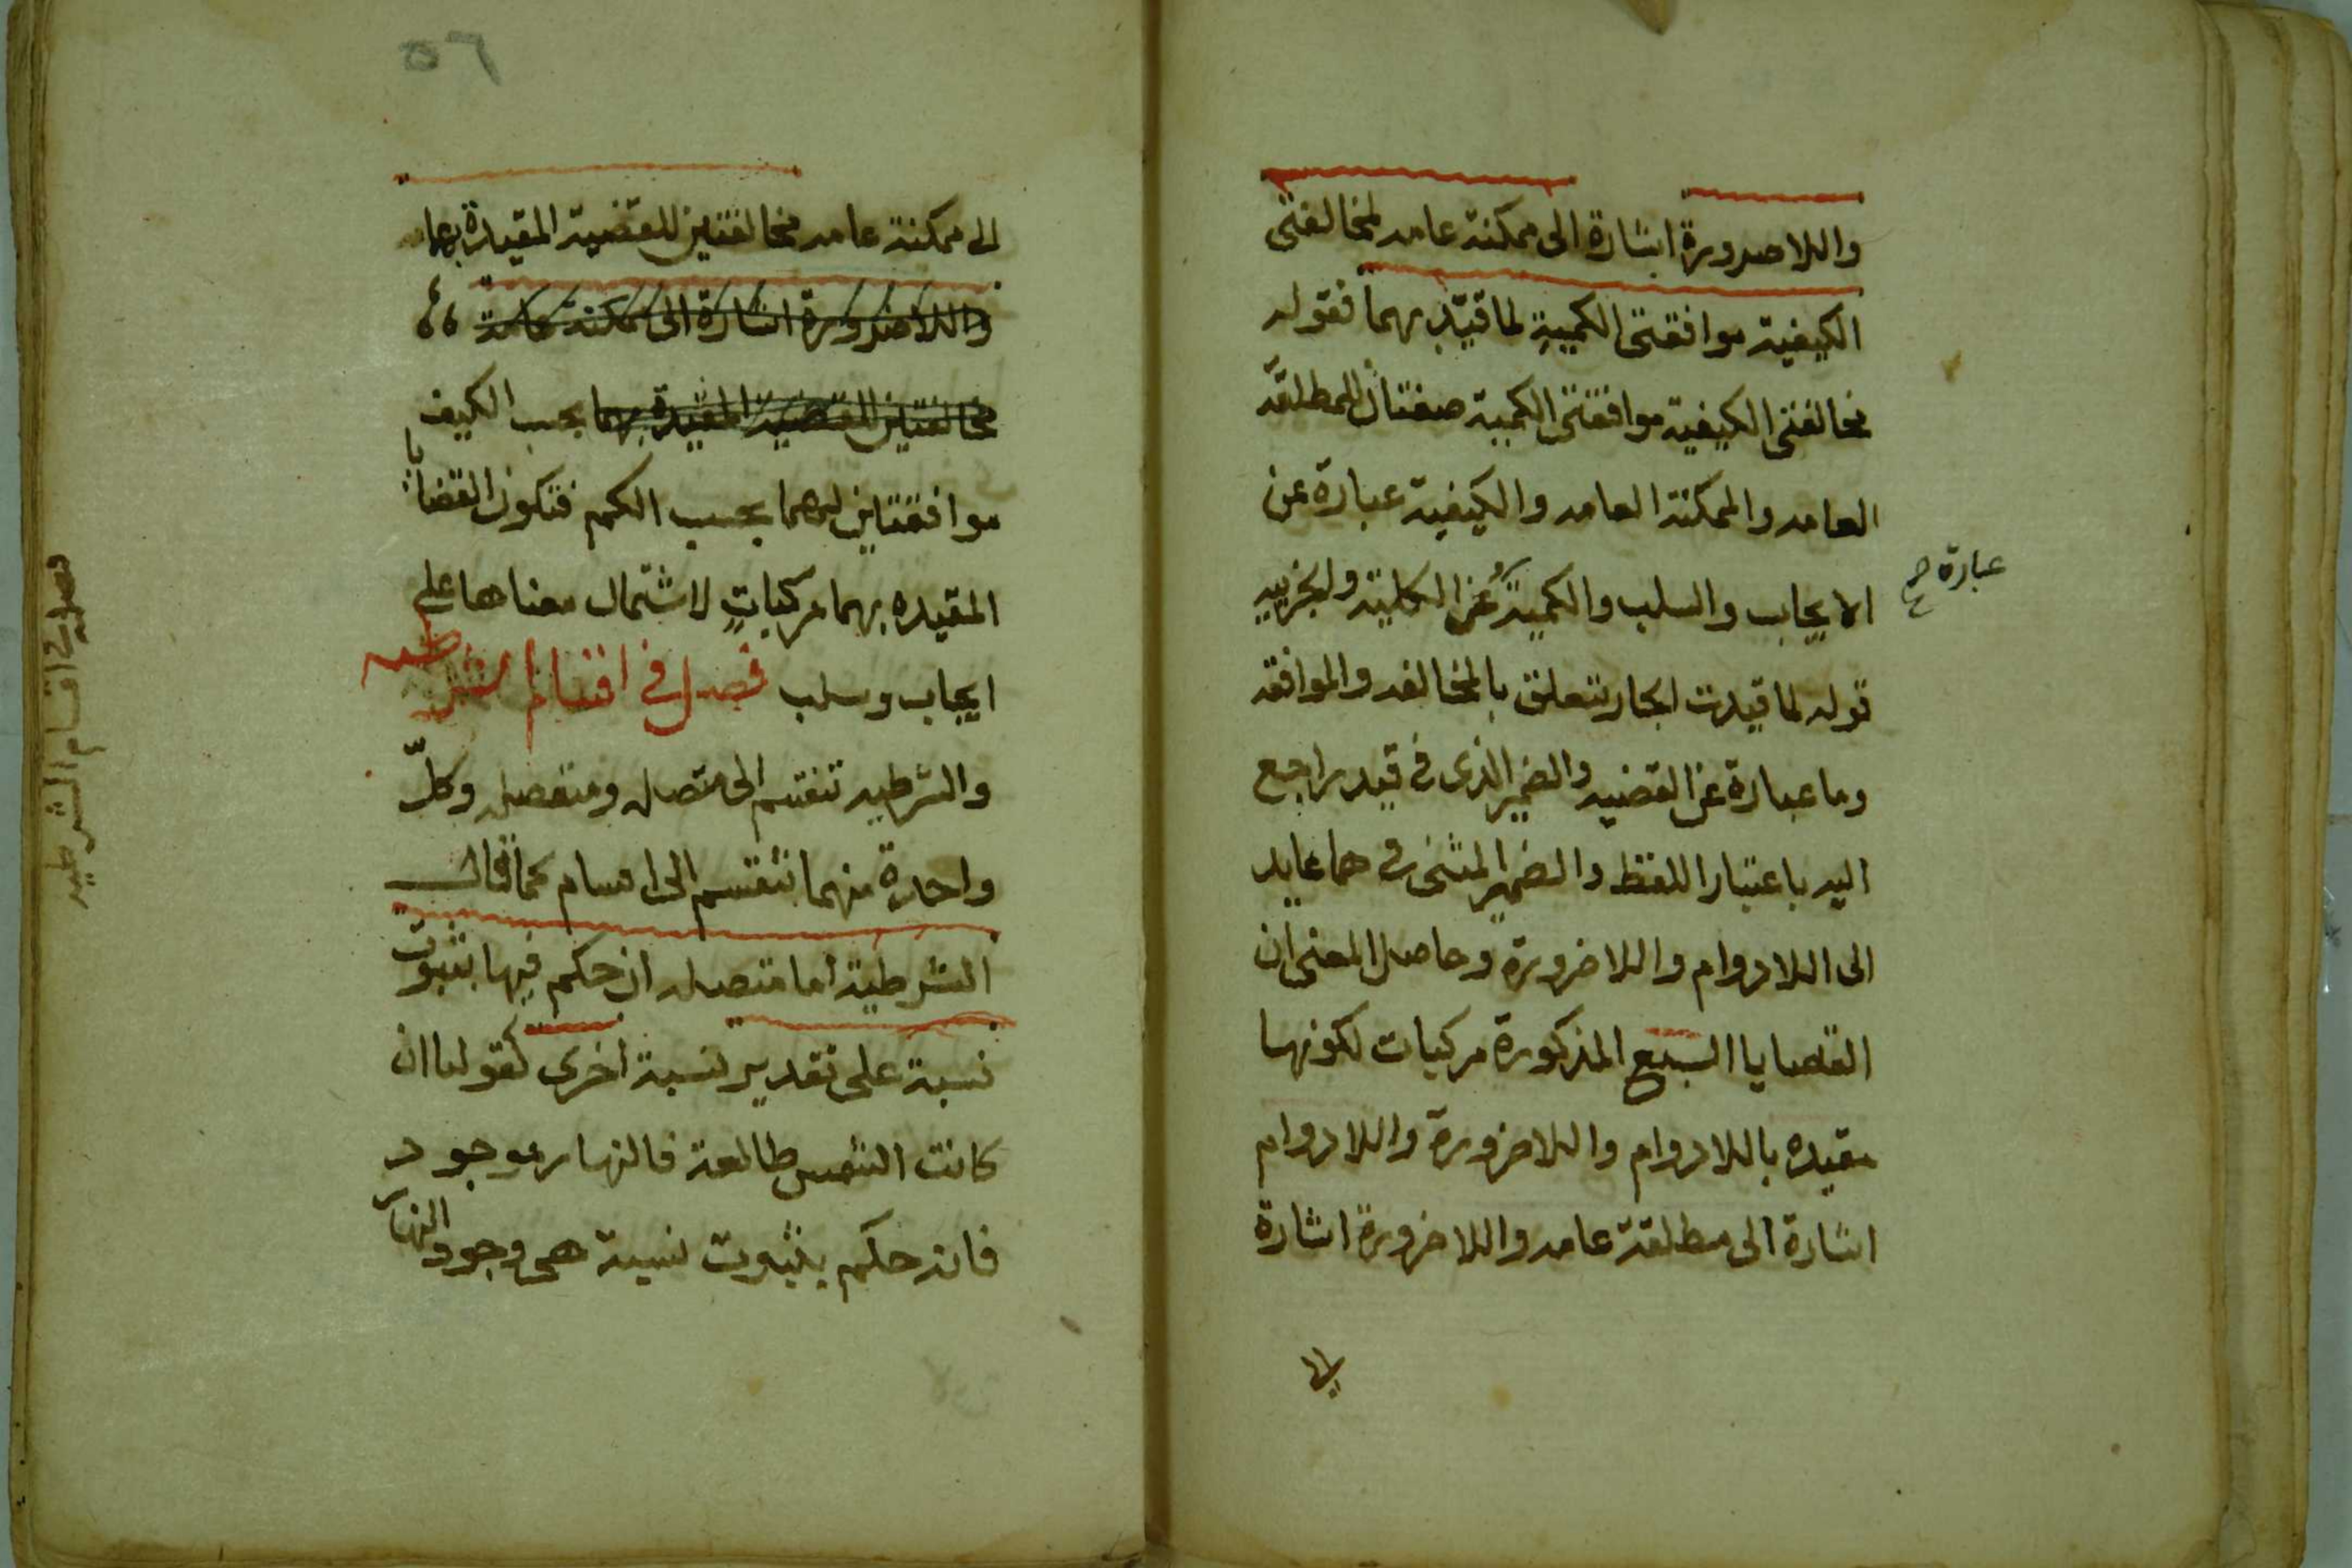 واللاضرورة اشارة الى ممكنة عامه لمخالفتى
الكيفية موافقتى الكمية لما قيّد بهما فقوله
مخالفتى الكيفية موافقتى الكمية صفتان للمطلقة
العامه والممكنة العامه والكيفية عبارة عن
الايجاب والسلب والكمية عن الكلية والجزييه
عبارة صح
قوله لما قيدت الجار يتعلق بالمخالفه والموافقه
وما عبارة عن القضيه والضمير الذى فى قيد راجع
اليه باعتبار اللفظ والضمير المثنى فى هما عايد
الى اللادوام واللاضرورة وحاصل المعنى ان
القضايا السبع المذكورة مركبات لكونها
مقيده باللادوام واللاضرورة واللادوام
اشارة الى مطلقة عامه واللاضرورة اشارة
٥٦
الى ممكنة عامه مخالفتين للقضية المقيدة بهما
واللاضرورة اشارة الى ممكنة عامة
مخالفتين للقضية المقيدة بهما بحسب الكيف
موافقتين لهما بحسب الكم فتكون القضايا
المقيده بهما مركبات لاشتمال معناها على
ايجاب وسلب فصل فى اقسام الشرطيه
والشرطيه تنقسم الى متصله ومنفصله وكلّ
واحدة منهما تنقسم الى اقسام كما قال
الشرطية اما متصله ان حكم فيها بثبوت
نسبة على تقدير نسبة اخرى كقولنا ان
كانت الشمس طالعة فالنهار موجود
فانه حكم بثبوت نسبة هى وجود النهار
فصل فى اقسام الشرطيه